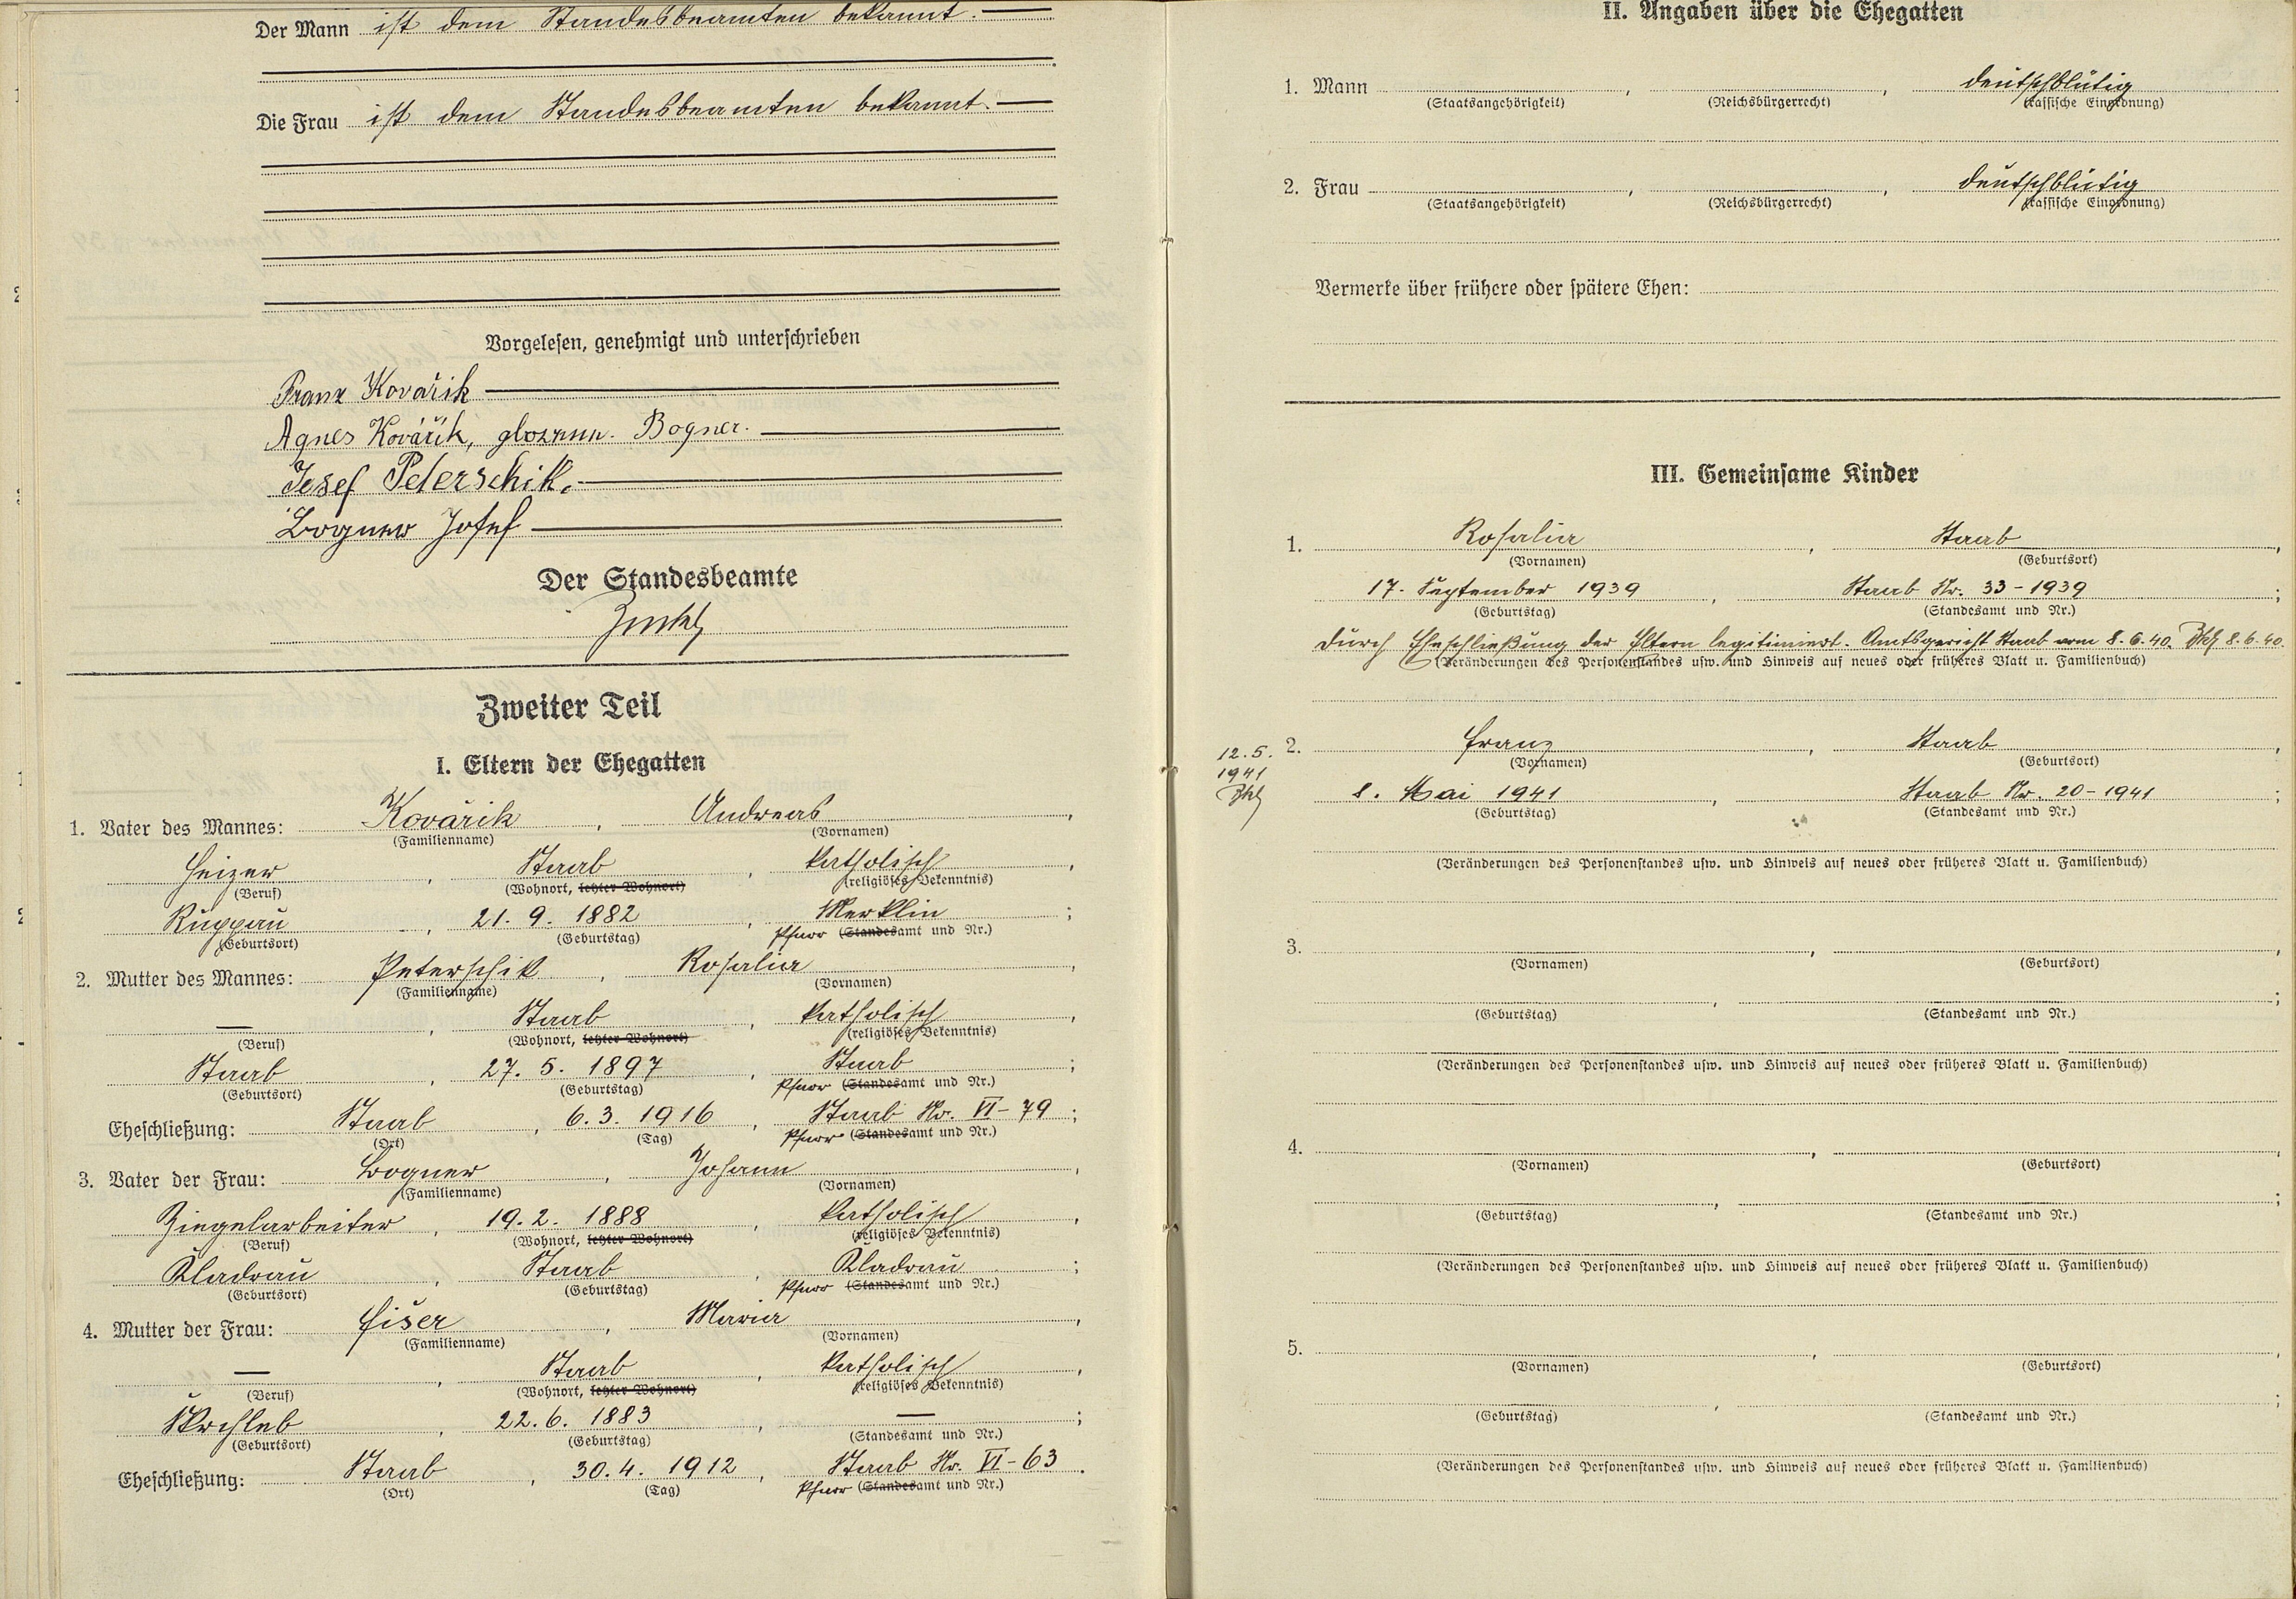 Der Mann ist dem Standesbeamten bekannt.
Die Frau ist dem Standesbeamten bekannt.
Vorgelesen, genehmigt und unterschrieben
Franz Kovařik
Agnes Kovářík, Bogner.
Josef Peterschik.
Bogner Josef
Der Standesbeamte
Zweiter Teil
I. Eltern der Ehegatten
1. Vater des Mannes: Kovařik, Andreas,
(Familienname) (Vornamen)
Heizer, Staab, katholisch,
(Beruf) (Wohnort, letzter Wohnort) (religiöses Bekenntnis)
Ruppau, 21. 9. 1882, Merklin;
(Geburtsort) (Geburtstag) Pfarr (Standesamt und Nr.)
2. Mutter des Mannes: Peterschik, Rosalia,
(Familienname) (Vornamen)
—, Staab, katholisch,
(Beruf) (Wohnort, letzter Wohnort) (religiöses Bekenntnis)
Staab, 27. 5. 1897, Staab;
(Geburtsort) (Geburtstag) Pfarr (Standesamt und Nr.)
Eheschließung: Staab, 6. 3. 1916, Staab Nr. VI - 79;
(Ort) (Tag) Pfarr (Standesamt und Nr.)
3. Vater der Frau: Bogner, Johann,
(Familienname) (Vornamen)
Ziegelarbeiter, 19. 2. 1888, katholisch,
(Beruf) (Wohnort, letzter Wohnort) (religiöses Bekenntnis)
Kladrau, Staab, Kladrau;
(Geburtsort) (Geburtstag) Pfarr (Standesamt und Nr.)
4. Mutter der Frau: Fišer, Maria,
(Familienname) (Vornamen)
—, Staab, katholisch,
(Beruf) (Wohnort, letzter Wohnort) (religiöses Bekenntnis)
Skrchleb, 22. 6. 1883, —;
(Geburtsort) (Geburtstag) (Standesamt und Nr.)
Eheschließung: Staab, 30. 4. 1912, Staab Nr. VI - 63.
(Ort) (Tag) Pfarr (Standesamt und Nr.)
II. Angaben über die Ehegatten
1. Mann , , deutschblütig
(Staatsangehörigkeit) (Reichsbürgerrecht) (rassische Einordnung)
2. Frau , , deutschblütig
(Staatsangehörigkeit) (Reichsbürgerrecht) (rassische Einordnung)
Vermerke über frühere oder spätere Ehen:
III. Gemeinsame Kinder
1. Rosalia, Staab,
(Vornamen) (Geburtsort)
17. September 1939, Staab Nr. 33 - 1939;
(Geburtstag) (Standesamt und Nr.)
durch Eheschließung der Eltern legitimiert. Amtsgericht Staab vom 8. 6. 40. 8. 6. 40.
(Veränderungen des Personenstandes usw. und Hinweis auf neues oder früheres Blatt u. Familienbuch)
12. 5.
1941
2. Franz, Staab,
(Vornamen) (Geburtsort)
8. Mai 1941, Staab Nr. 20 - 1941;
(Geburtstag) (Standesamt und Nr.)
(Veränderungen des Personenstandes usw. und Hinweis auf neues oder früheres Blatt u. Familienbuch)
3. , ,
(Vornamen) (Geburtsort)
(Geburtstag) (Standesamt und Nr.)
(Veränderungen des Personenstandes usw. und Hinweis auf neues oder früheres Blatt u. Familienbuch)
4. , ,
(Vornamen) (Geburtsort)
(Geburtstag) (Standesamt und Nr.)
(Veränderungen des Personenstandes usw. und Hinweis auf neues oder früheres Blatt u. Familienbuch)
5. , ,
(Vornamen) (Geburtsort)
(Geburtstag) (Standesamt und Nr.)
(Veränderungen des Personenstandes usw. und Hinweis auf neues oder früheres Blatt u. Familienbuch)